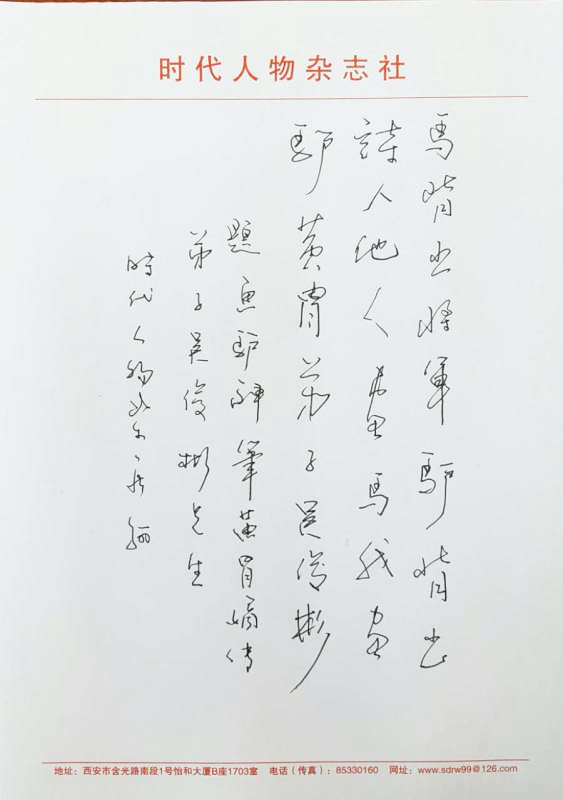 时代人物杂志社
馬背出將軍驴背出
詩人他人畫馬我画
驴黄胄弟子吴俊彬
題画驴神筆黄胄嫡傳
弟子吴俊彬先生
時代人物
地址：西安市含光路南段1号怡和大厦B座1703室 电话（传真）：85330160 网址：www.sdrw99@126.com